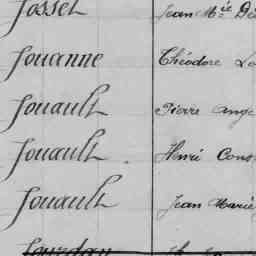 Josset Jean Mie
Jouanne Théodore
Jouault Pierre Ange
Jouault Henri
Jouault Jean Marie
Jourdan